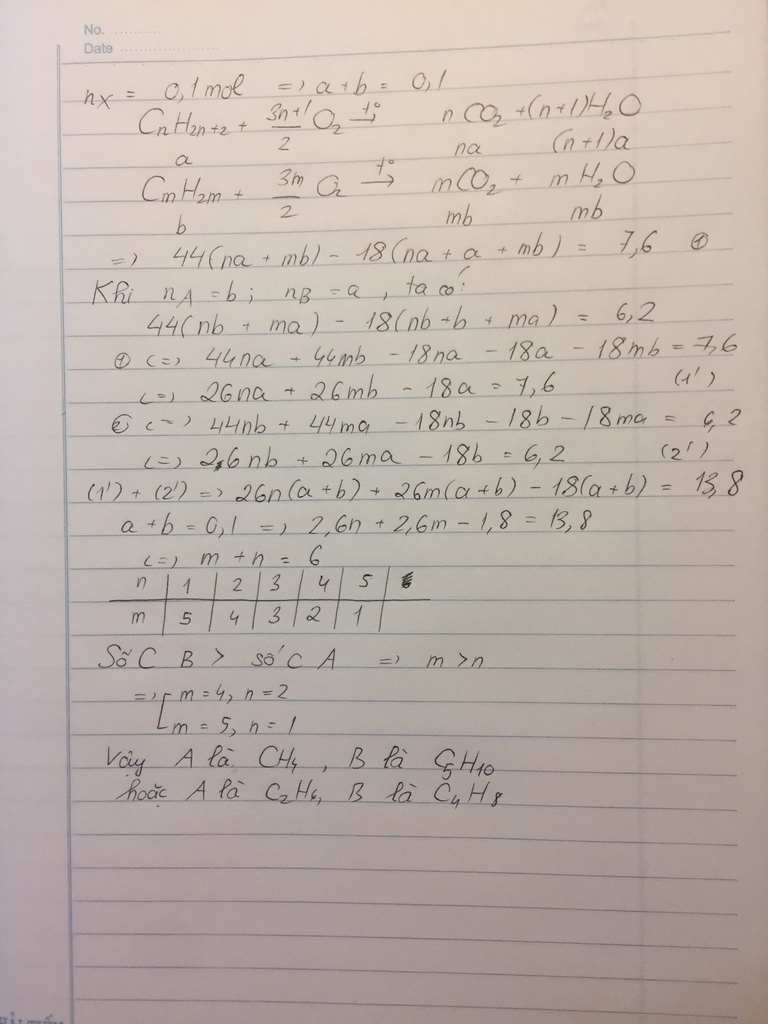 No. ..........
Date ....................
nX = 0,1 mol => a+b = 0,1
CnH2n+2 + (3n+1)/2 O2 t°→ nCO2 + (n+1)H2O
a na (n+1)a
CmH2m + 3m/2 O2 t°→ mCO2 + mH2O
b mb mb
=> 44(na + mb) - 18(na + a + mb) = 7,6 ①
Khi nA = b ; nB = a , ta có:
44(nb + ma) - 18(nb + b + ma) = 6,2
① <=> 44na + 44mb - 18na - 18a - 18mb = 7,6
<=> 26na + 26mb - 18a = 7,6 (1')
② <=> 44nb + 44ma - 18nb - 18b - 18ma = 6,2
<=> 26nb + 26ma - 18b = 6,2 (2')
(1') + (2') => 26n(a+b) + 26m(a+b) - 18(a+b) = 13,8
a+b = 0,1 => 2,6n + 2,6m - 1,8 = 13,8
<=> m + n = 6
n | 1 | 2 | 3 | 4 | 5 |
m | 5 | 4 | 3 | 2 | 1 |
Số C B > số C A => m > n
=> [ m = 4, n = 2
m = 5, n = 1
Vậy A là CH4 , B là C5H10
hoặc A là C2H6, B là C4H8